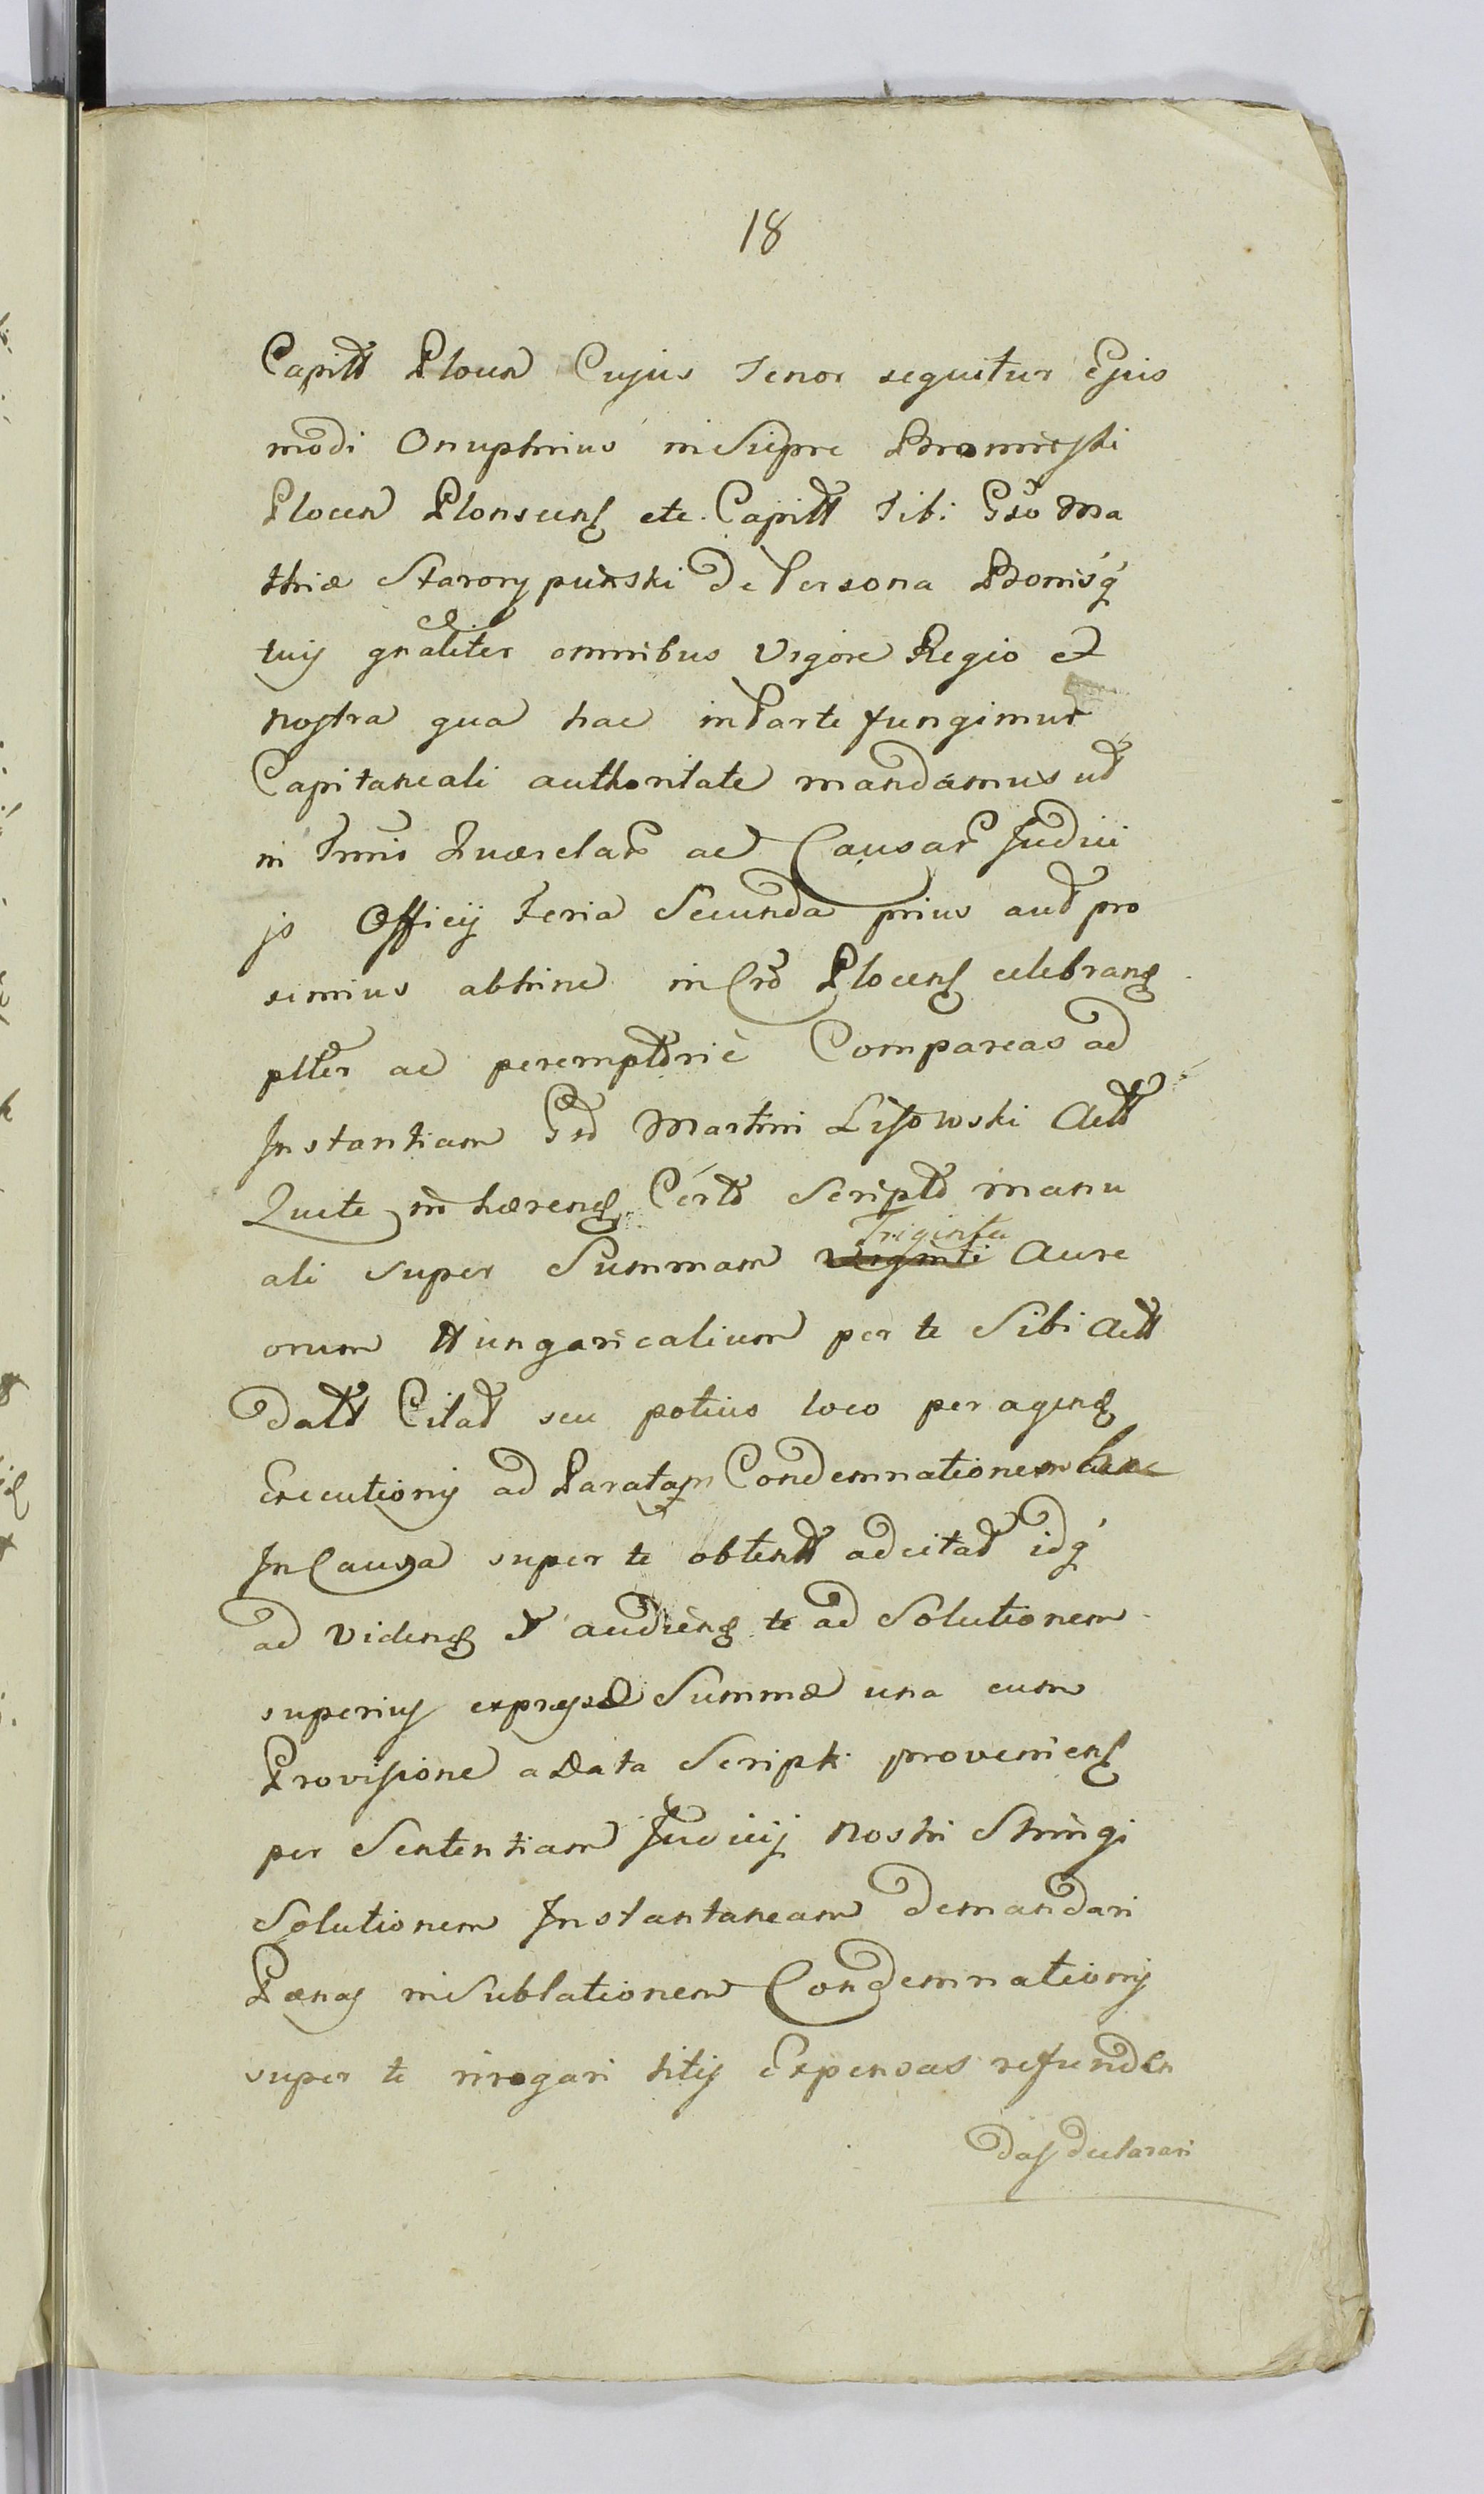 18
Capittt Plocen Cujus Tenor sequitur Ejus
modi Onuphrius in Siepre Bromirski
Plocen Plonscens etc. Capittt Tibi Gso Ma
thiæ Starorypinski De Persona Bonisq
tuis gnaliter omnibus Vigore Regio et
nostra qua hac in Parte fungimur
Capitaneali authoritate mandamus ut
in Trmis Quærelar ac Causar Judici
js Officij Feria Secunda prius aut pro
ximius abhinc in Cro Plocens celebrans
ptter ac peremptorie Compareas ad
Instantiam Gsi Martini Lissowski Actt
Qui te inhærens Certo Scripto manu
ali super Summam Triginta Viginti Aure
orum Hungaricalium per te Sibi Actt
datt Citat seu potius loco peragens
Executionis ad Paratam Condemnationem hac
In Causa super te obtentt adcitat idq
ad Videns et audiens te ad Solutionem
superius expressæ Summæ una cum
Provisione a Data Scripti proveniens
per Sententiam Judicij Nostri Stringi
Solutionem Instantaneam demandari
Pænas in Sublationem Condemnationis
super te irrogari litis Expensas refunden
das declarari